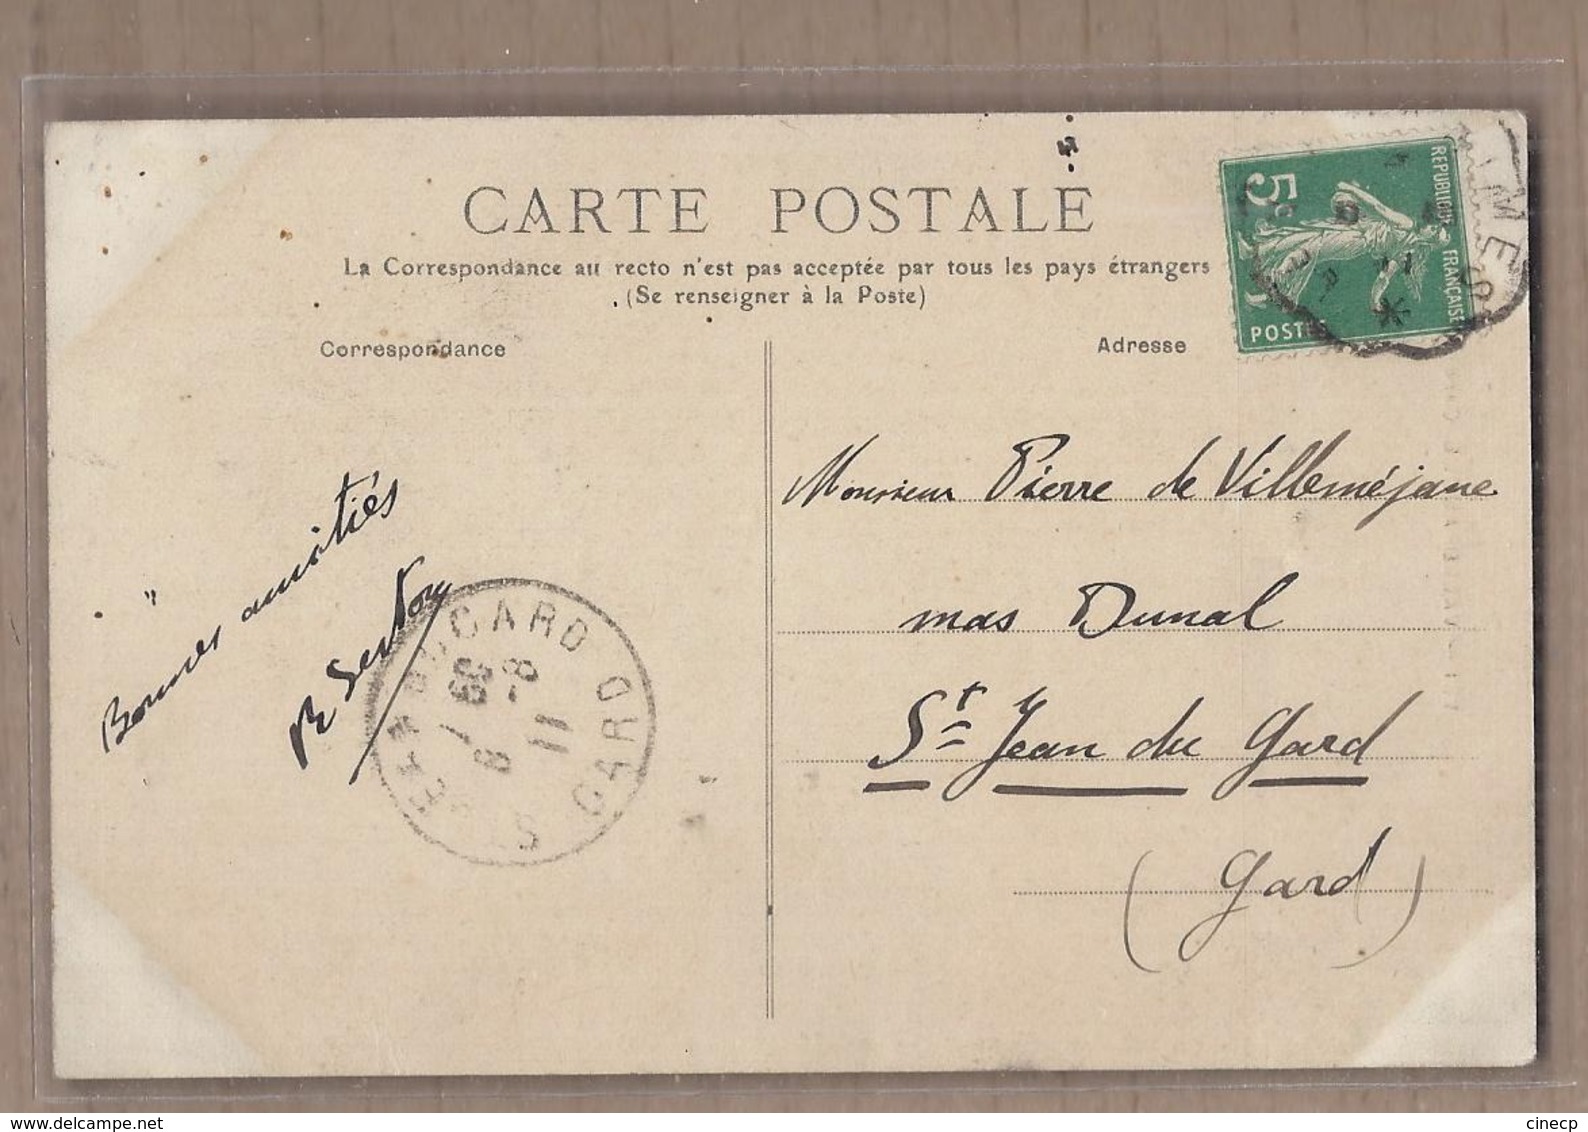 CARTE POSTALE
La Correspondance au recto n'est pas acceptée par tous les pays étrangers
(Se renseigner à la Poste)
Correspondance
Adresse
REPUBLIQUE FRANÇAISE
5c
POSTES
MES
11
Bonnes amitiés
Monsieur Pierre de Villeméjane
mas Dunal
St Jean du Gard
(Gard)
GARD
8-8
11
cinecp